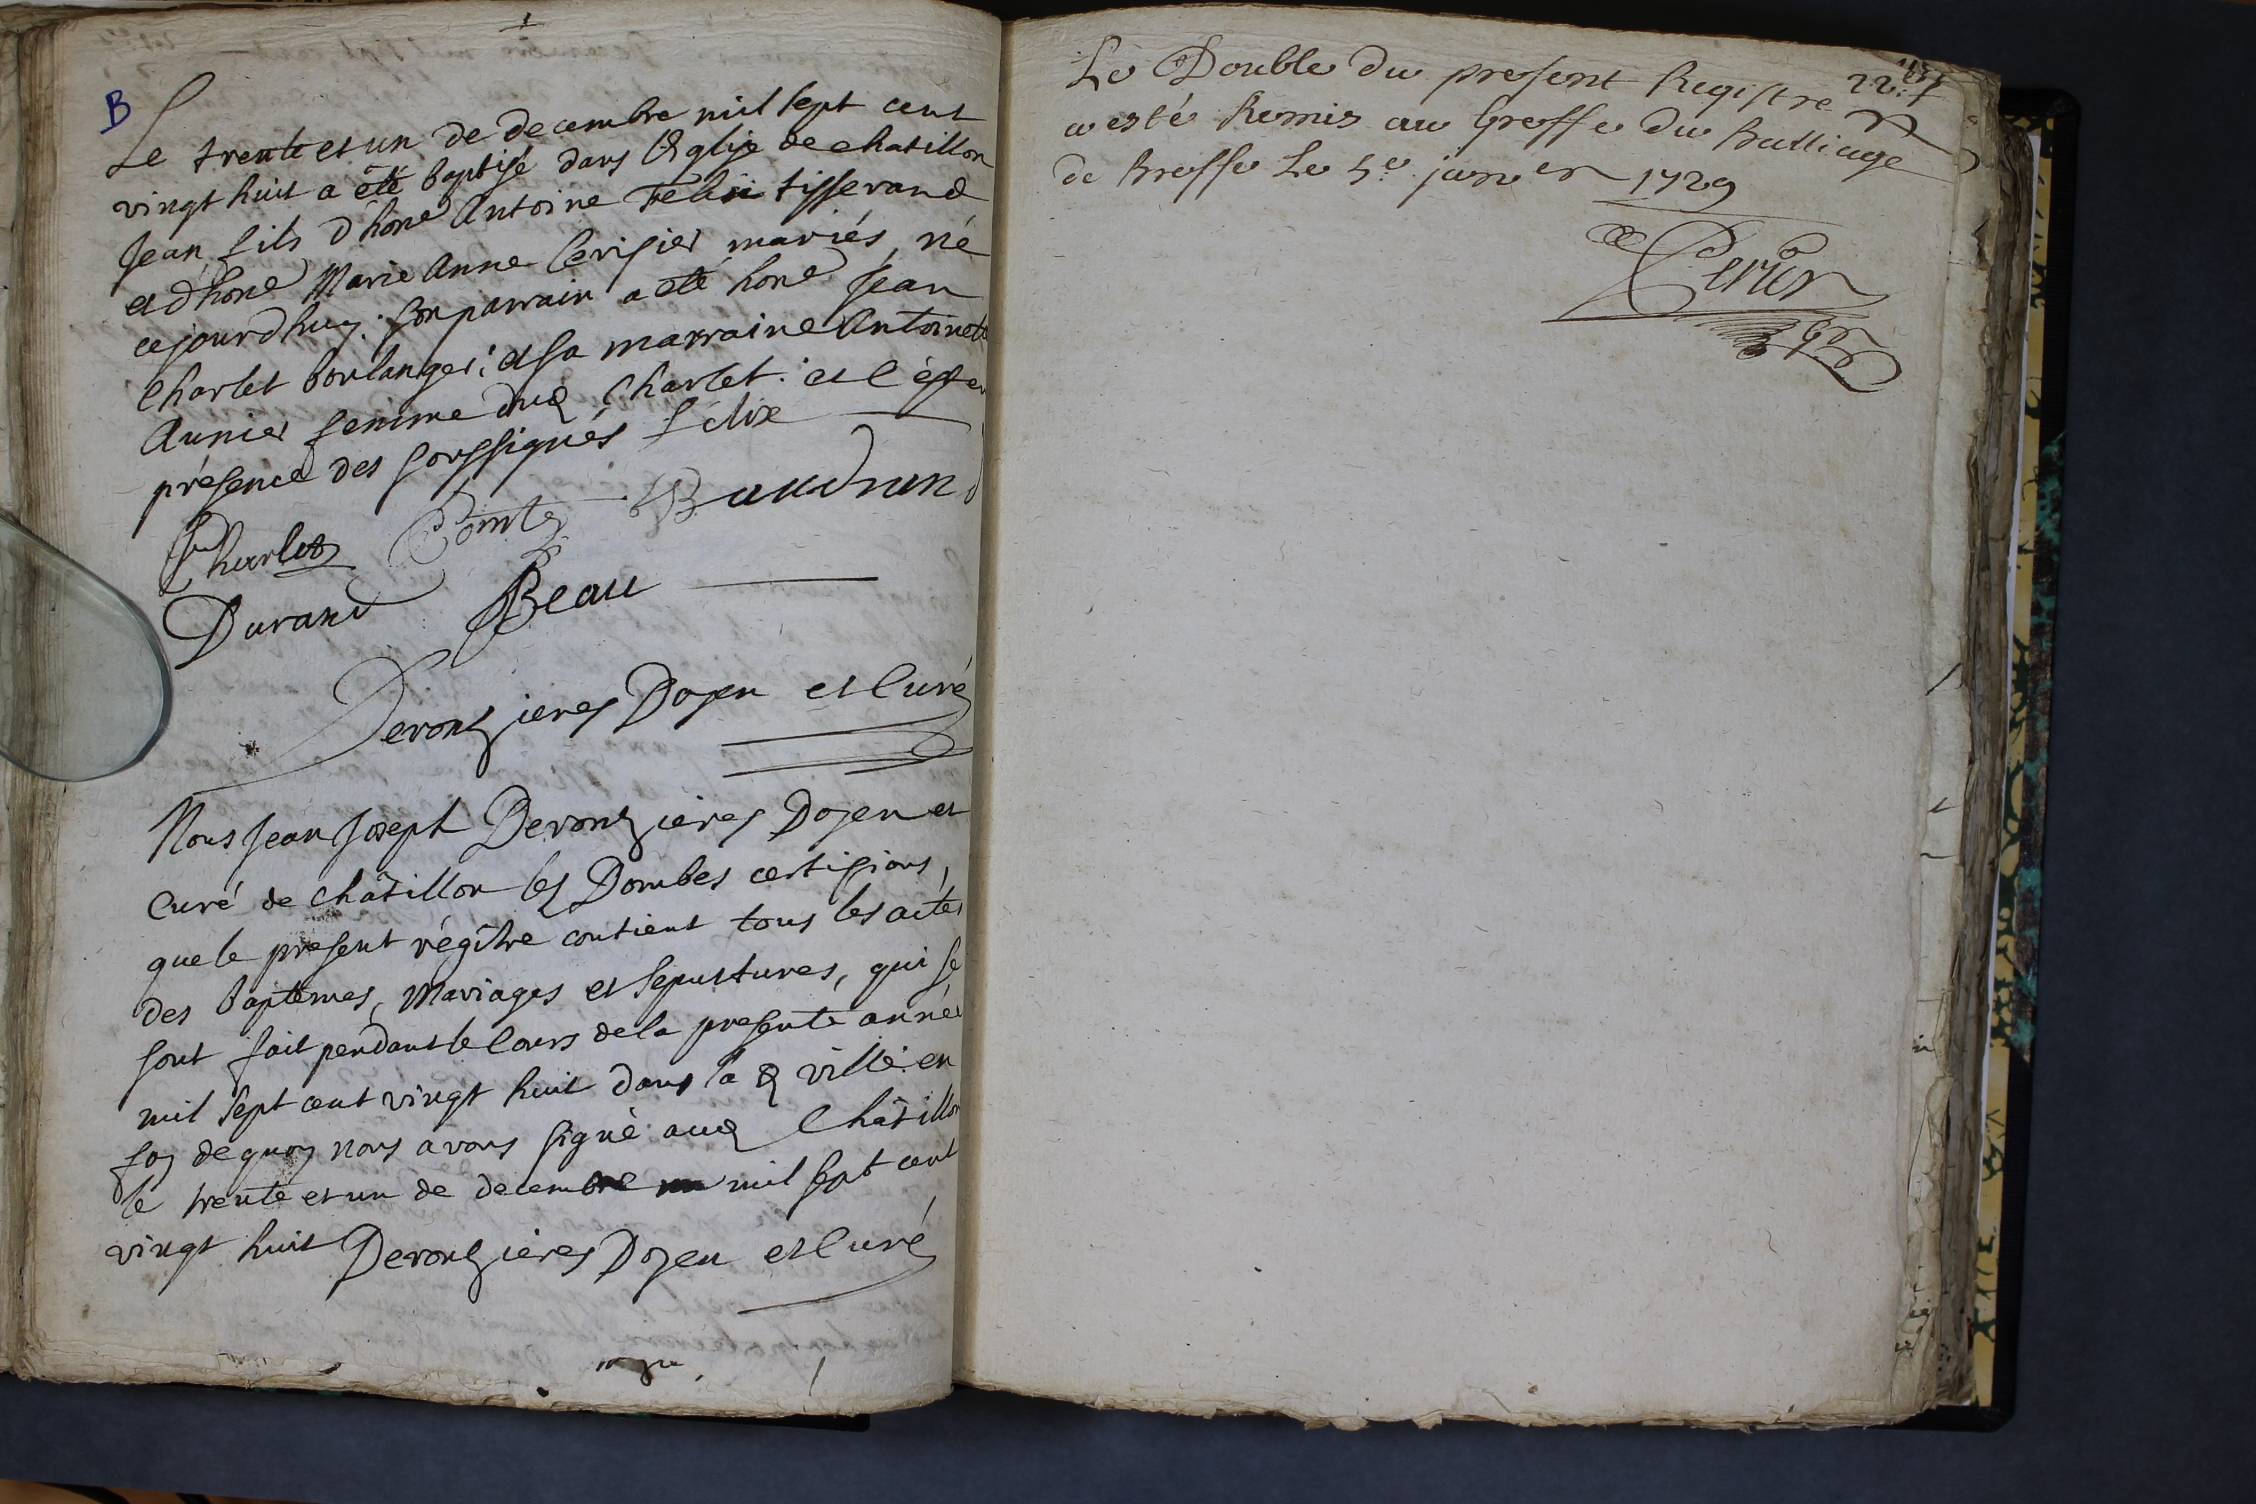 B
Le trente et un de decembre mil sept cent
vingt huit a été baptisé dans l'Eglise de chatillon
Jean fils d'hone Antoine Felix tisserand
et d'hone Marie Anne Cerisier mariés, né
cejourdhuy. son parrain a été hone Jean
Charlet boulanger, et sa marraine Antoinete
Aunier femme dud Charlet. et l'é
présence des soussignés Félix
Charlet Comte Baudran
Durand Beau
Deronzieres Doyen et Curé
Nous Jean Joseph Deronzieres Doyen et
Curé de châtillon les Dombes certifions,
que le present régître contient tous les actes
des baptemes, mariages et sepultures, qui se
sont fait pendant le cours de la presente année
mil sept cent vingt huit dans la d ville. en
foy dequoy nous avons signé aud Châtillon
le trente et un de decembre mil sept cent
vingt huit Deronzieres Doyen et Curé
Le Double du present Registre
a esté Remis au Greffe du Balliage
de Bresse Le 5e janvier 1729
Perier